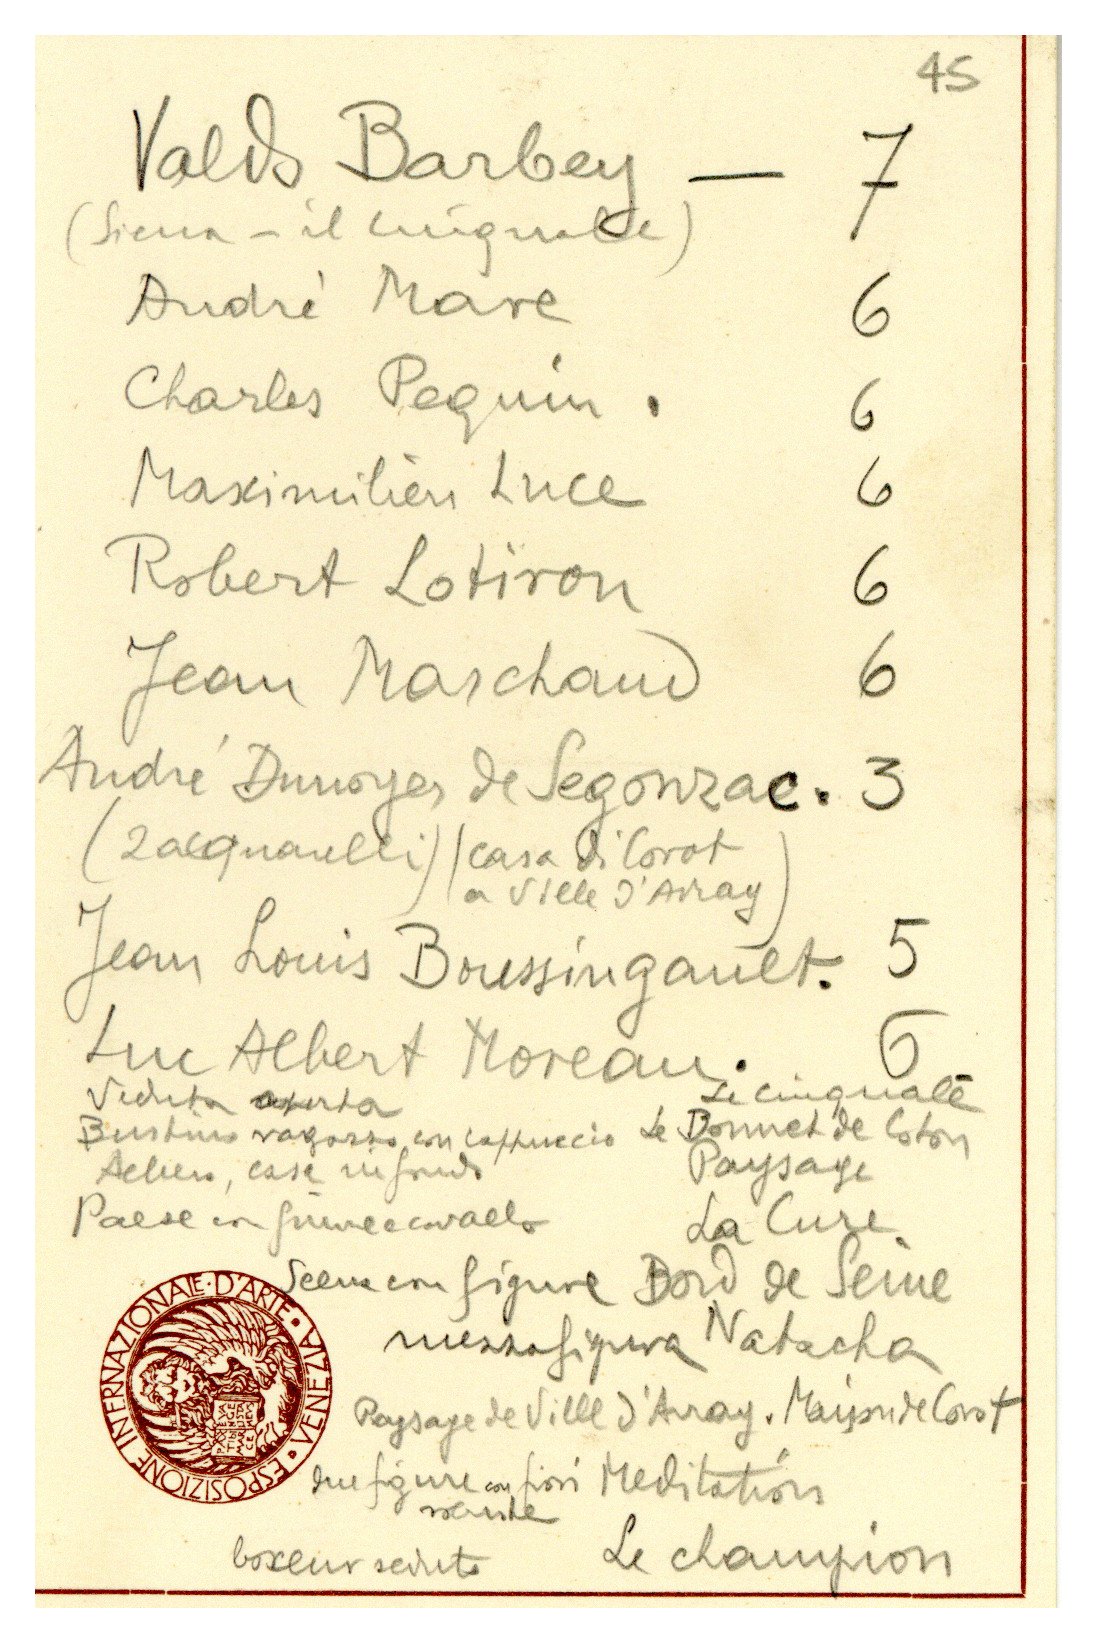 45
Valdo Barbey — 7
(Siena – il cinquale)
André Mare 6
Charles Pequin . 6
Maximilien Luce 6
Robert Lotiron 6
Jean Marchand 6
André Dunoyer de Segonzac . 3
(2 acquarelli) (casa di Corot
a Ville d'Avray)
Jean Louis Boussingault . 5
Luc Albert Moreau . 6
Veduta aperta Le cinquale
Bustino ragazzo con cappuccio Le Bonnet de Coton
Albero, case in fondo Paysage
Paese con fiume e cavallo La Cure
Scena con figure Bord de Seine
mezza figura Natacha
Paysage de Ville d'Avray . Maison de Corot
due figure con fiori Meditation
boxeur seduto Le champion
ESPOSIZIONE INTERNAZIONALE · D'ARTE · VENEZIA ·